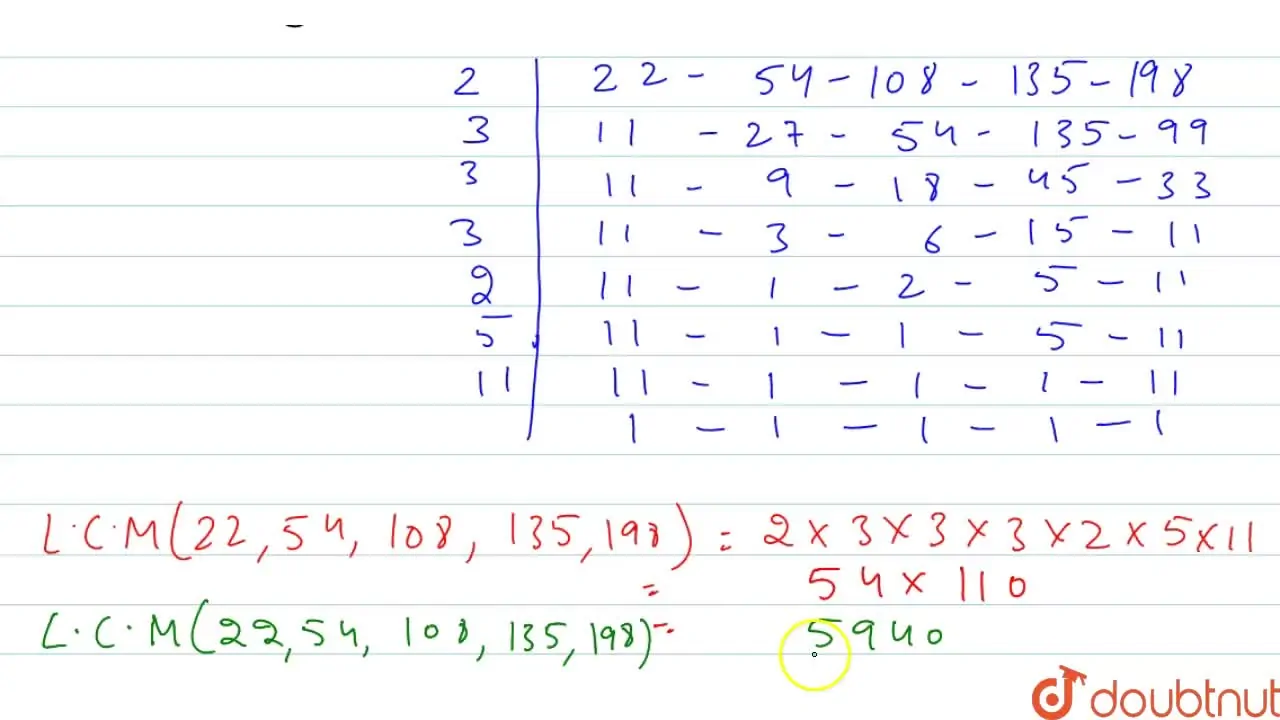 2 | 22 - 54 - 108 - 135 - 198
3 | 11 - 27 - 54 - 135 - 99
3 | 11 - 9 - 18 - 45 - 33
3 | 11 - 3 - 6 - 15 - 11
2 | 11 - 1 - 2 - 5 - 11
5 | 11 - 1 - 1 - 5 - 11
11 | 11 - 1 - 1 - 1 - 11
1 - 1 - 1 - 1 - 1
L.C.M(22, 54, 108, 135, 198) = 2 × 3 × 3 × 3 × 2 × 5 × 11
= 54 × 110
L.C.M(22, 54, 108, 135, 198) = 5940
doubtnut